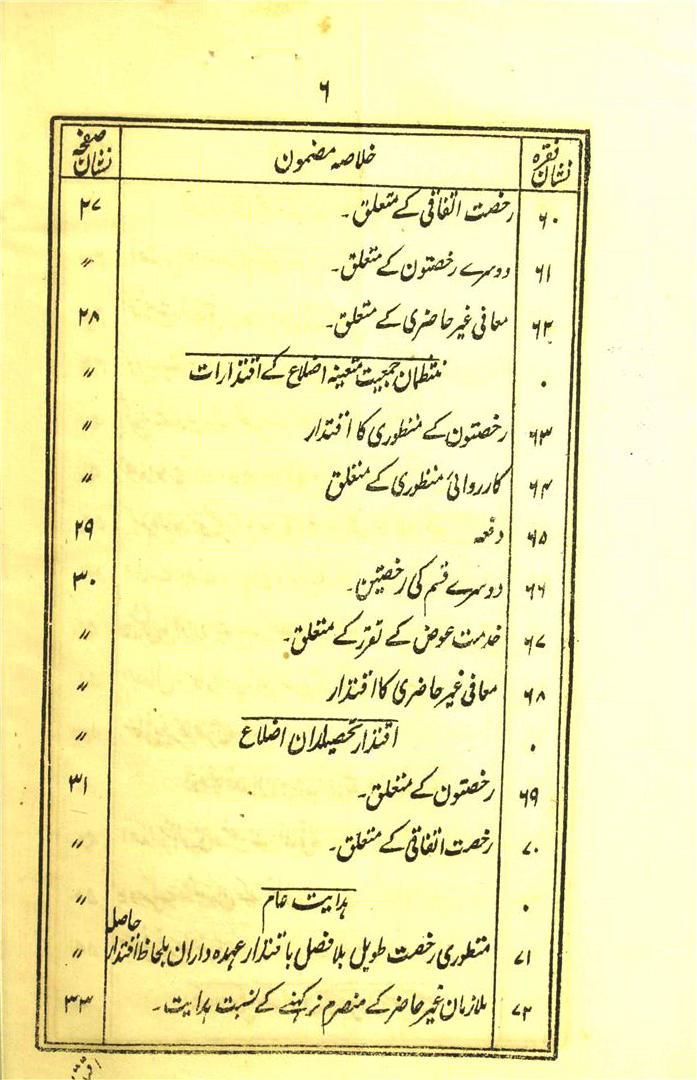 ۶
نشان فقرہ	خلاصہ مضمون	نشان صفحہ
۶۰	رخصت اتفاقی کے متعلق۔	۲۷
۶۱	دوسرے رخصتون کے متعلق۔	〃
۶۲	معافی غیر حاضری کے متعلق۔	۲۸
۰	منتظمان جمعیت متعینہ اضلاع کے اقتدارات	〃
۶۳	رخصتون کے منظوری کا اقتدار	〃
۶۴	کارروائی منظوری کے متعلق	〃
۶۵	دفعہ	۲۹
۶۶	دوسرے قسم کی رخصتین۔	۳۰
۶۷	خدمت عوض کے تقرر کے متعلق۔	〃
۶۸	معافی غیر حاضری کا اقتدار	〃
۰	اقتدار تحصیلداران اضلاع	〃
۶۹	رخصتون کے متعلق۔	۳۱
۷۰	رخصت اتفاقی کے متعلق۔	〃
۰	ہدایت عام	〃
۷۱	منظوری رخصت طویل بلا فصل باقتدار عہدہ داران بلحاظ اقتدار حاصل	〃
۷۲	ملازمان غیر حاضر کے منصرم نرکہنے کے نسبت ہدایت۔	۳۳